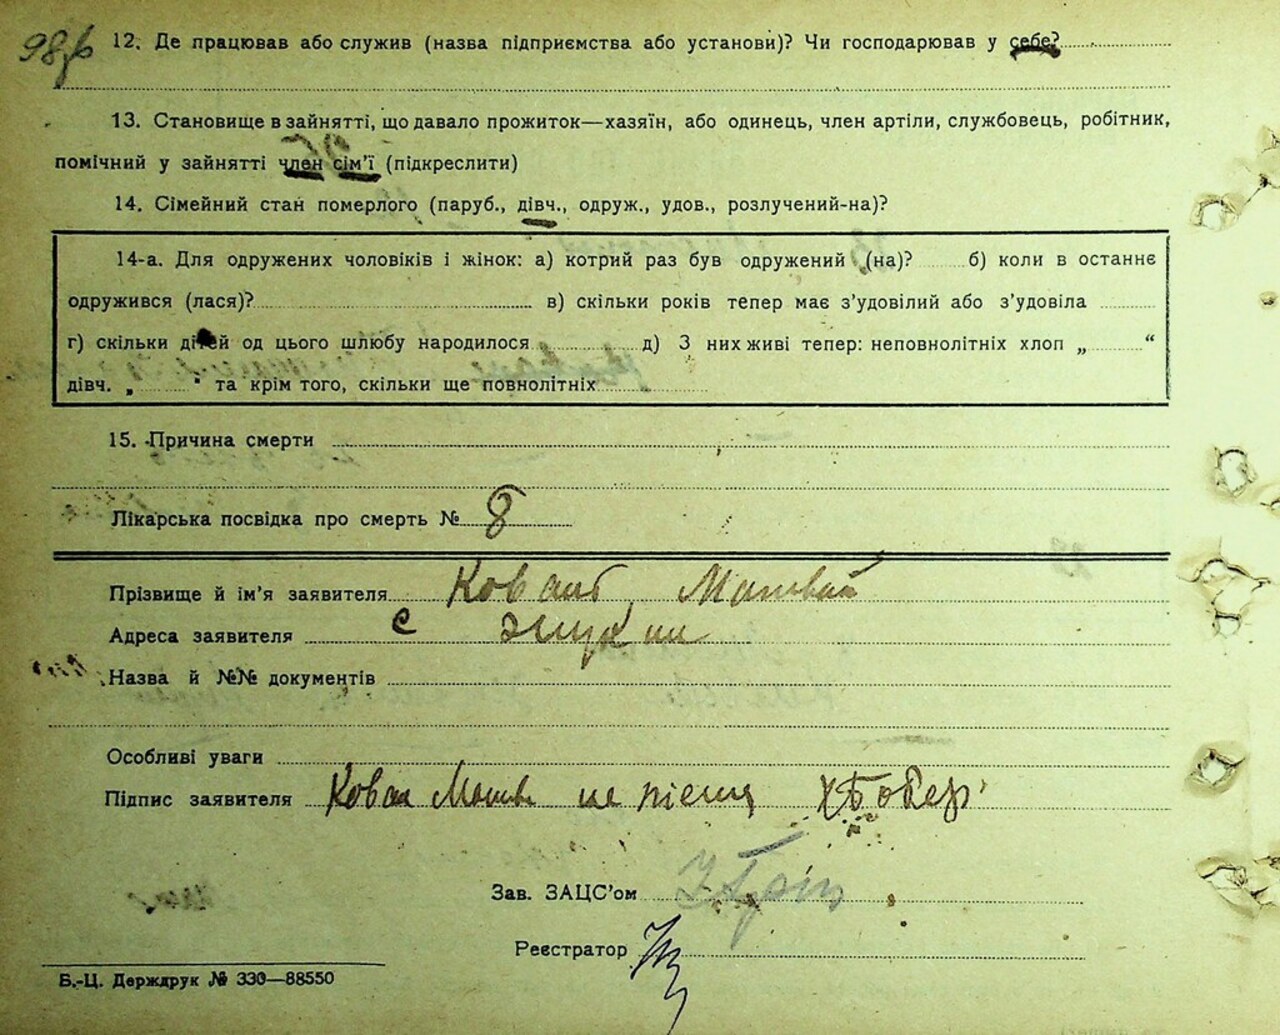 12. Де працював або служив (назва підприємства або установи)? Чи господарював у себе?
13. Становище в зайнятті, що давало прожиток—хазяїн, або одинець, член артіли, службовець, робітник,
помічний у зайнятті член сім’ї (підкреслити)
14. Сімейний стан померлого (паруб., дівч., одруж., удов., розлучений-на)?
14-а. Для одружених чоловіків і жінок: а) котрий раз був одружений (на)? б) коли в останнє
одружився (лася)? в) скільки років тепер має з’удовілий або з’удовіла
г) скільки дітей од цього шлюбу народилося д) З них живі тепер: неповнолітніх хлоп „ “
дівч. „ “ та крім того, скільки ще повнолітніх
15. Причина смерти
Лікарська посвідка про смерть № 8
Прізвище й ім’я заявителя Коваль Матвій
Адреса заявителя с
Назва й №№ документів
Особливі уваги
Підпис заявителя Ковал
Зав. ЗАЦС’ом
Реєстратор
Б.-Ц. Держдрук № 330—88550